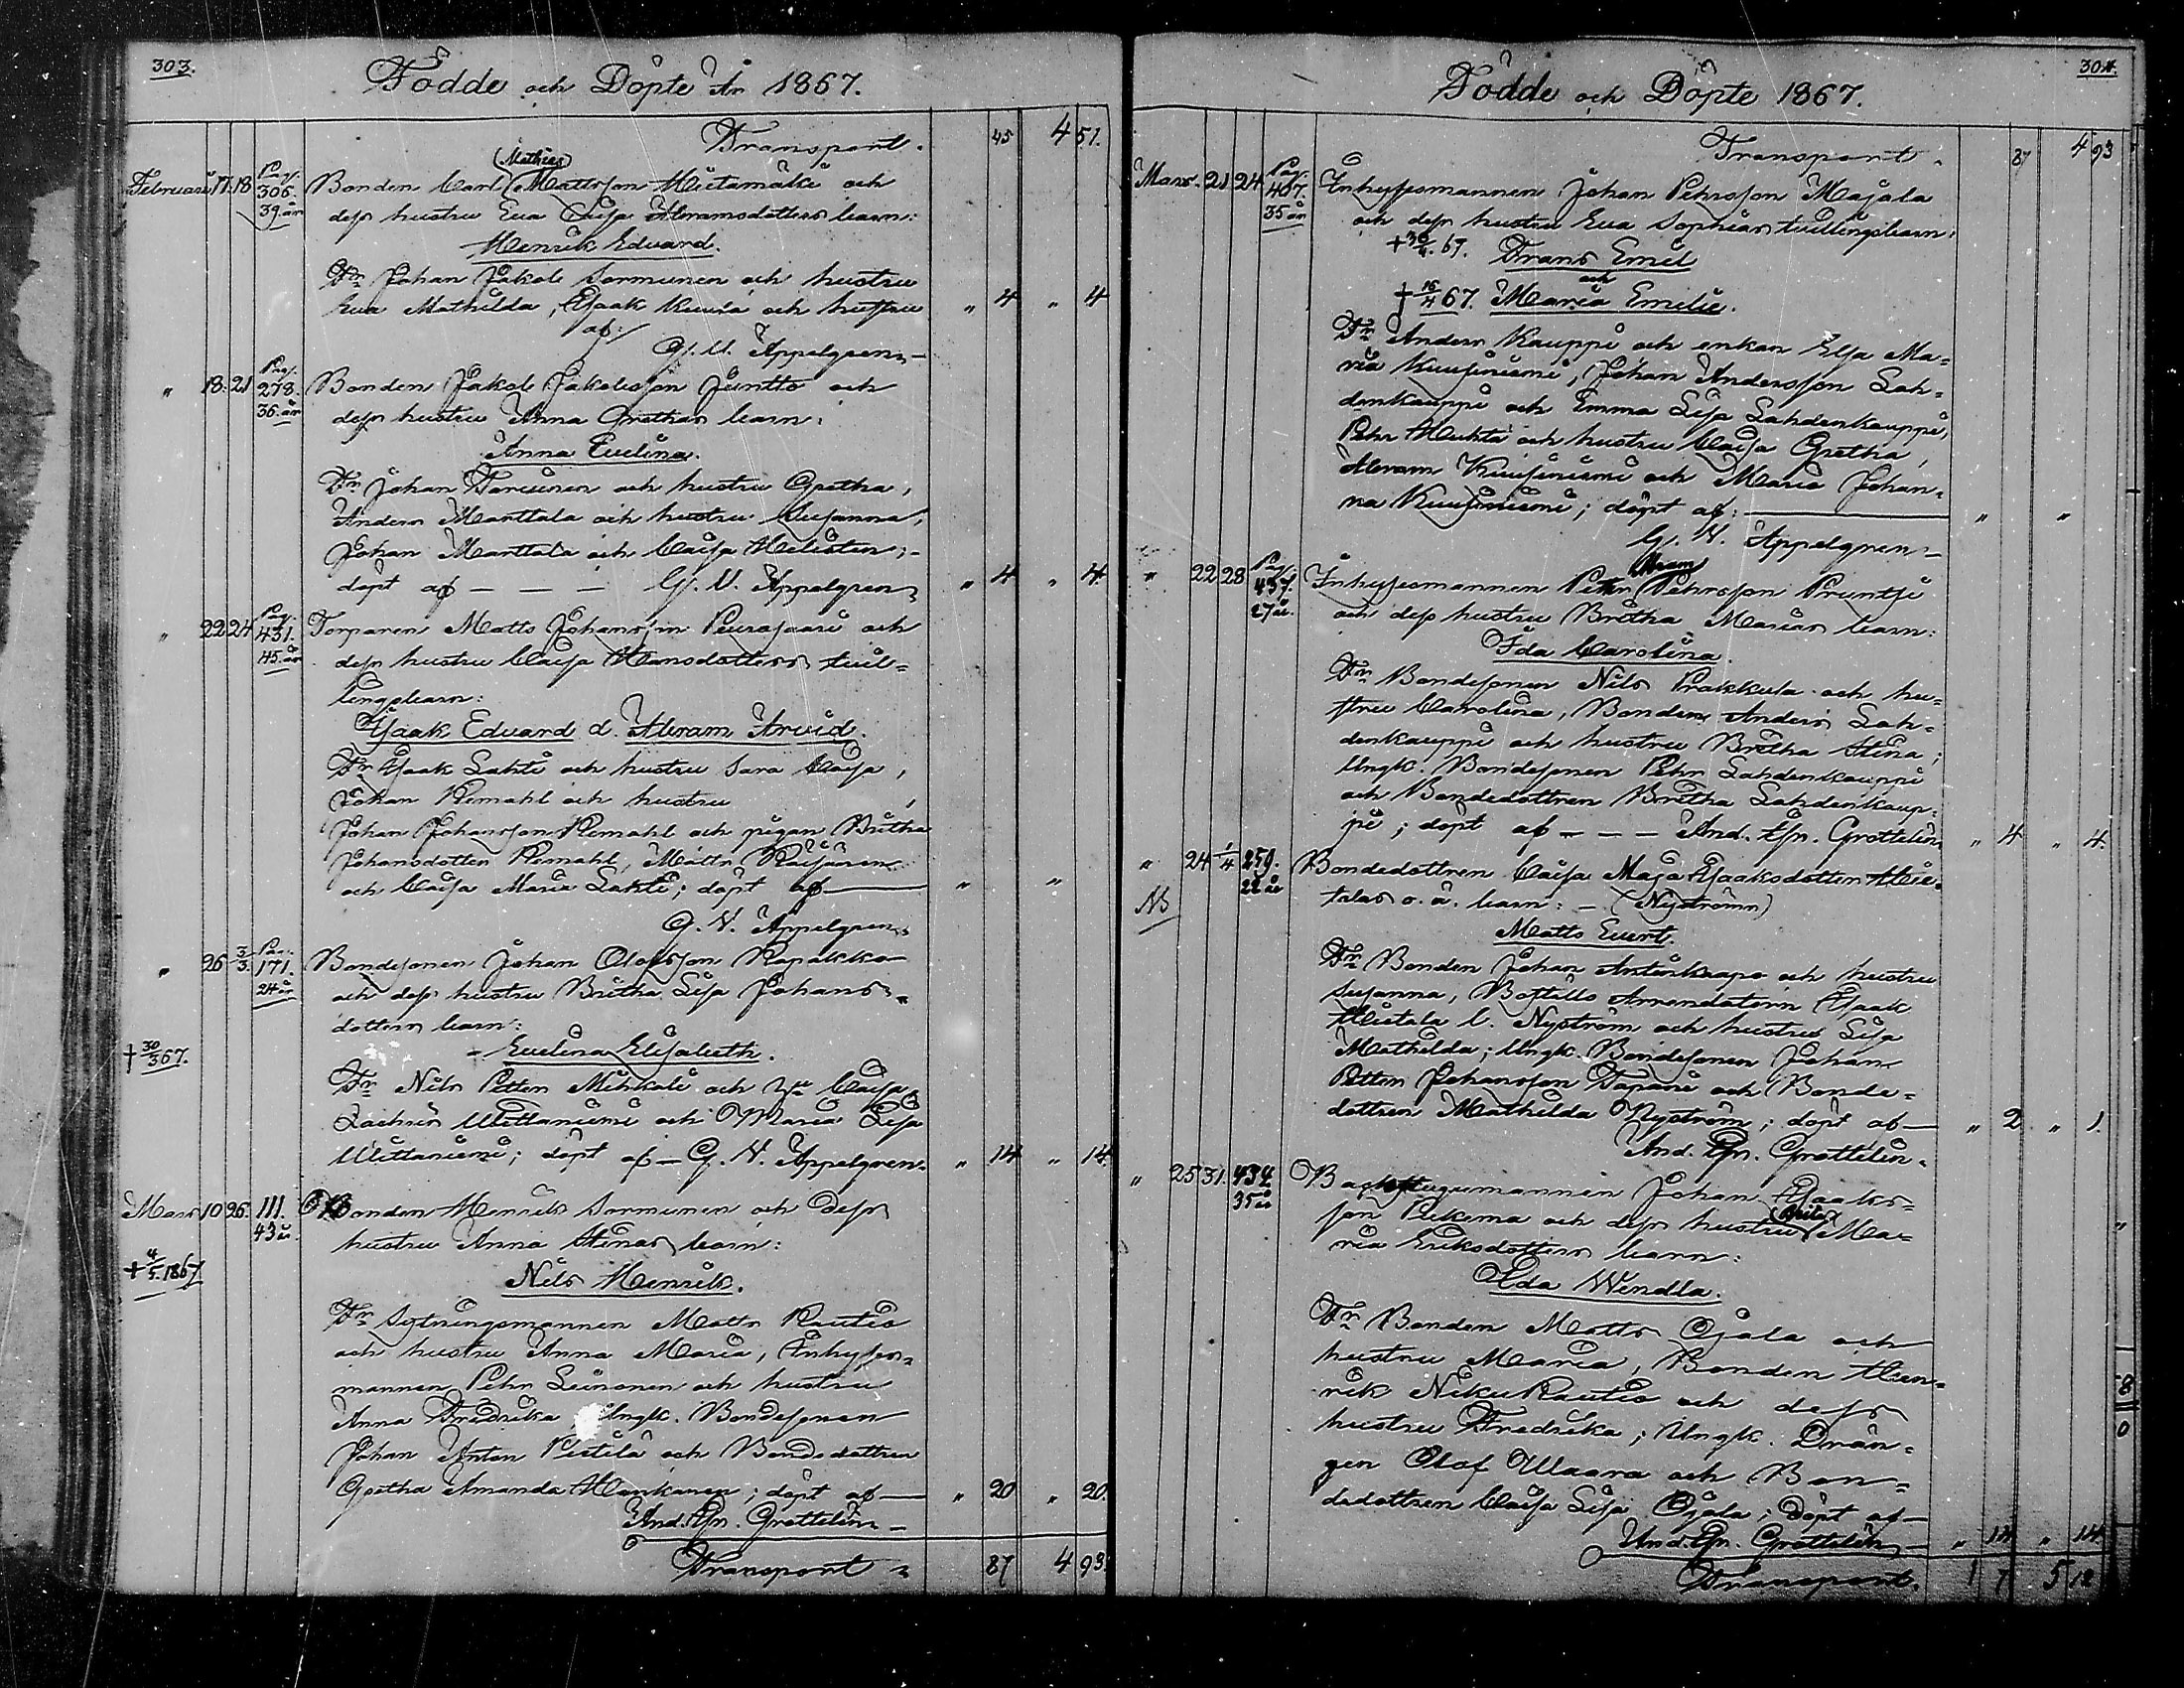 303.
Födde och Döpte År 1867.
Transport. 45 4 51.
(Mathias)
Februari 17. 18 Pag. 306. 39. år Bonden Carl Mattsson Hietamäki och
dess hustru Eva Caisa Abramsdotters barn:
Henrik Edvard.
Fr. Johan Jakob Sormunen och hustru
Eva Mathilda, Isaak Kuura och hustru " 4 " 4
af:
G. V. Appelgren.
" 18. 21 Pag. 278. 36. år Bonden Jakob Jakobsson Juntto och
dess hustru Anna Grethas barn:
Anna Evelina.
Fr. Johan Torvinen och hustru Gretha,
Anders Marttala och hustru Susanna,
Johan Marttala och Caisa Helisten;
döpt af — — — G. V. Appelgren " 4 " 4.
" 22 24 Pag. 431. 45. år Torparen Matts Johansson Peurasaari och
dess hustru Caisa Hansdotters tvil-
lingsbarn:
Isaak Edvard o. Abram Arvid.
Fr. Isaak Lahti och hustru Sara Caisa,
Johan Remahl och hustru
Johan Johansson Remahl och pigan Britha
Johansdotter Remahl, Matts Raisänen
och Caisa Maria Lahti; döpt af — " "
G. V. Appelgren.
" 26 3/3. Pag. 171. 24 år Bondesonen Johan Olofsson Rapakko
och dess hustru Britha Lisa Johans-
dotters barn:
† 30/3 67. Evelina Elisabeth.
Fr. Nils Petter Mihkali och Caisa
Zachris Uittaniemi och Maria Lisa
Uittaniemi; döpt af — G. V. Appelgren. " 14 " 14.
Mars 10 26. 111. 43 år. Bonden Henrik Sormunen och dess
hustru Anna Stinas barn:
† 4/5. 1867 Nils Henrik.
Fr. Sytningsmannen Matts Rautio
och hustru Anna Maria, Inhyses-
mannen Pehr Leinonen och hustru
Anna Fredrika, Ungk. Bondesonen
Johan Anton Pietilä och Bondedottren
Gretha Amanda Hankanen; döpt af — " 20 " 20.
And. Joh. Grottelin.
Transport 87 4 93.
304.
Födde och Döpte 1867.
Transport. 87 4 93
Mars. 21 24 Pag. 407. 35 år Inhysesmannen Johan Pehrsson Majala
och dess hustru Eva Sophias tvillingsbarn:
† 30/4. 67. Frans Emil
och
† 16/4 67. Maria Emilie.
Fr. Anders Kauppi och enkan Elsa Ma-
ria Kuusiniemi, Johan Andersson Lah-
denkauppi och Emma Lisa Lahdenkauppi,
Pehr Huhta och hustru Caisa Gretha,
Abram Kuusiniemi och Maria Johan-
na Kuusiniemi; döpt af: — " "
G. V. Appelgren.
Abram
" 22 28 Pag. 437. 27 år. Inhysesmannen Pehr Pehrsson Pruntsi
och dess hustru Britha Marias barn:
Ida Carolina.
Fr. Bondesonen Nils Prakkula och hu-
stru Carolina, Bonden Anders Lah-
denkauppi och hustru Britha Stina;
Ungk. Bondesonen Pehr Lahdenkauppi
och Bondedottren Britha Lahdenkaup-
pi; döpt af — — — And. Joh. Grottelin. " 4 " 4.
" 24 1/4 259. 22 år Bondedottren Caisa Maja Isaaksdotter Hie-
NB talas o. ä. barn: — (Nyström)
Matts Evert.
Fr. Bonden Johan Antinkaapo och hustru
Susanna, Boställs Arrendatorn Isaak
Hietala l. Nyström och hustru Lisa
Mathilda; Ungk. Bondesonen Johan
Petter Johansson Tapani och Bonde-
dottren Mathilda Nyström; döpt af — " 2 " 1.
And. Joh. Grottelin.
" 25 31. 434. 35 år Backstugumannen Johan Isaaks-
son Pirkema och dess hustru (Brita) Ma-
ria Eriksdotters barn:
Ida Wendla.
Fr. Bonden Matts Ojala och
hustru Maria, Bonden Hen-
rik Niku Rautio och dess
hustru Fredrika; Ungk. Drän-
gen Olof Waara och Bon-
dedottren Caisa Lisa Ojala; döpt af —
And. Joh. Grottelin — " 14 " 14.
Transport. 1 7 5 12